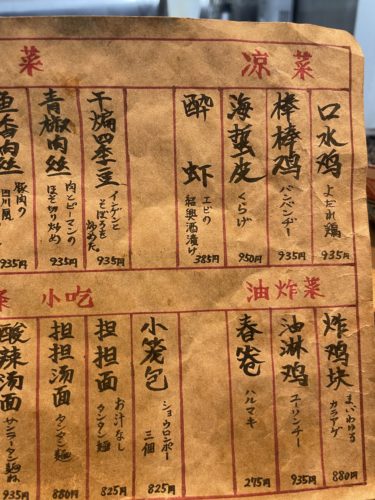 凉菜
口水鸡
よだれ鶏
935円
棒棒鸡
バンバンヂー
935円
海蜇皮
くらげ
950円
醉虾
エビの
紹興酒漬け
385円
菜
干煸四季豆
インゲンと
そぼろを
炒めた。
935円
青椒肉丝
肉とピーマンの
ほそ切り炒め
935円
鱼香肉丝
豚肉の
四川風
935円
油炸菜
炸鸡块
まいわゆる
カラアゲ
880円
油淋鸡
ユーリンチー
935円
春卷
ハルマキ
275円
小吃
小笼包
ショウロンポー
三個
825円
担担面
お汁なし
タンタン麺
825円
担担汤面
タンタン麺
880円
酸辣汤面
サンラータン麺
935円